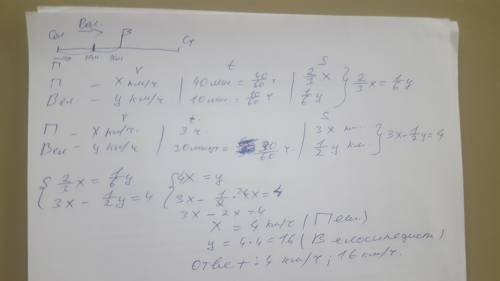 Сел Вел. В Ст
П
V t S
П – х км/ч | 40 мин = 40/60 ч | 2/3 x } 2/3 x = 1/6 y
Вел. – y км/ч | 10 мин = 10/60 ч | 1/6 y
V t. S
П – х км/ч. | 3 ч. | 3x км. } 3x - 1/2 y = 4
Вел – y км/ч | 30 минут = 30/60 ч | 1/2 y км.
{ 2/3 x = 1/6 y { 4x = y
3x - 1/2 y = 4 3x - 1/2 · 4x = 4
3x - 2x = 4
x = 4 км/ч (Пеш.)
y = 4·4 = 16 (Велосипедист)
Ответ: 4 км/ч; 16 км/ч.